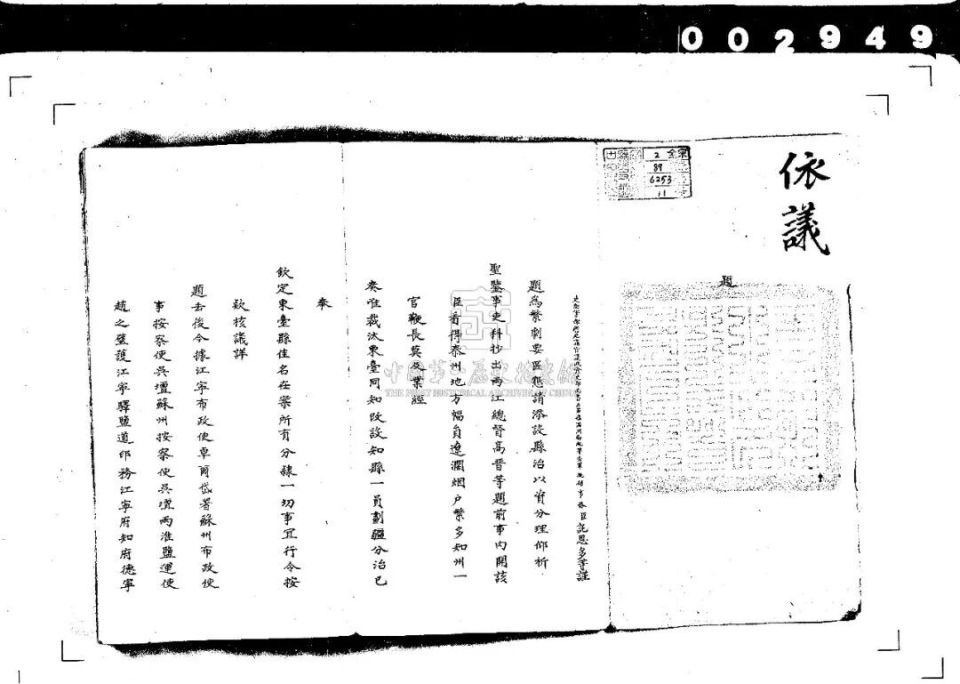 002949
依議
題
全宗
2
89
6253
11
題為繁劇要區懇請添設縣治以資分理仰祈
聖鑒事吏科抄出兩江總督高晉等題前事內開該
臣看得泰州地方幅員遼濶烟户繁多知州一
官鞭長莫及業經
奏准裁汰東臺同知改設知縣一員劃疆分治已
奉
欽定東臺縣佳名在案所有分隸一切事宜行令按
欵核議詳
題去後今據江寧布政使
署蘇州布政使
事按察使吳壇蘇州按察使吳
兩淮鹽運使
趙之璧護江寧驛鹽道印務江寧府知府德寧
中國第一歷史檔案館
THE FIRST HISTORICAL ARCHIVES OF CHINA